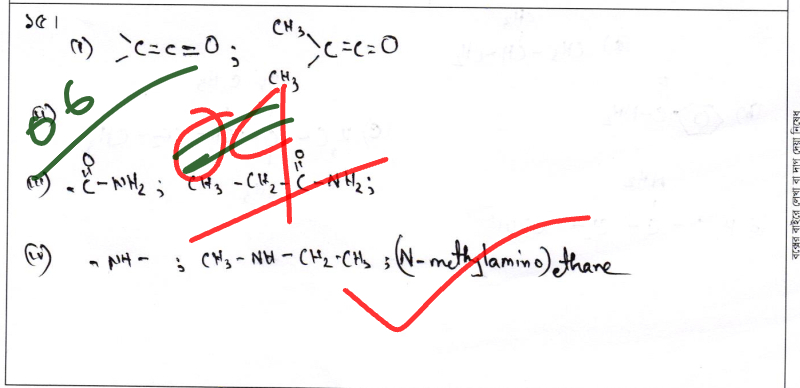 ১৫।
(i) >C=C=O ; CH₃ CH₃ >C=C=O
06
(ii)
04
(iii) -C(=O)-NH₂ ; CH₃-CH₂-C(=O)-NH₂ ;
(iv) -NH- ; CH₃-NH-CH₂-CH₃ ; (N-methylamino)ethane
বক্সের বাইরে লেখা বা দাগ দেয়া নিষেধ